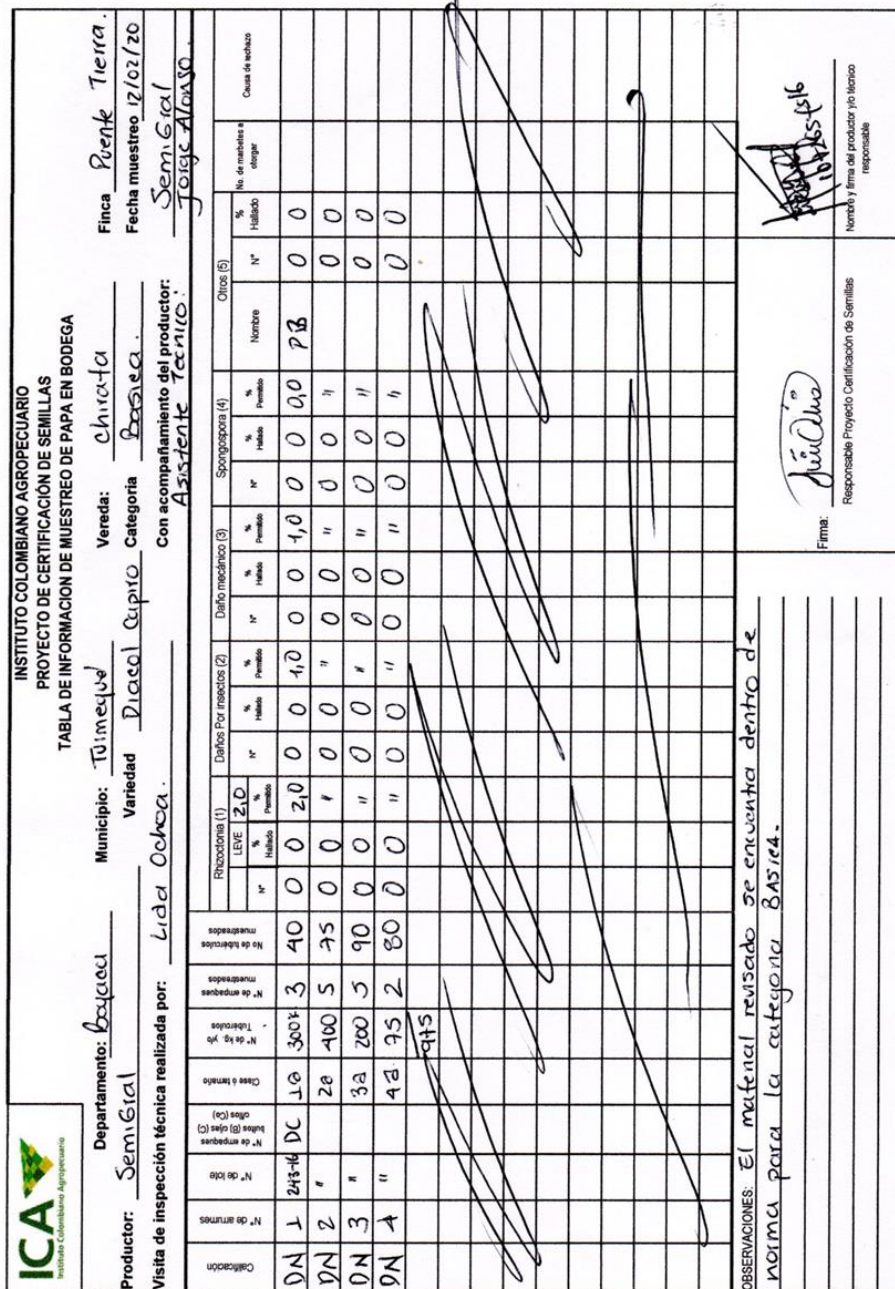 ICA
Instituto Colombiano Agropecuario
INSTITUTO COLOMBIANO AGROPECUARIO
PROYECTO DE CERTIFICACIÓN DE SEMILLAS
TABLA DE INFORMACION DE MUESTREO DE PAPA EN BODEGA
Departamento: Boyacá Municipio: Tuimeque Vereda: Chirata Finca Puente Tierra.
Productor: SemiGral Variedad Diacol Capiro Categoria Basica. Fecha muestreo 12/02/20
Visita de inspección técnica realizada por: Lida Ochoa. Con acompañamiento del productor: SemiGral
Asistente Tecnico: Jorge Alonso.
Calificación N°. de arrumes N°. de lote N°. de empaques bultos (B) cajas (C) ollos (Co) Clase ó tamaño N°. de kg. y/o Tubérculos N°. de empaques muestreados No de tubérculos muestreados Rhizoctonia (1) Daños Por insectos (2) Daño mecánico (3) Spongospora (4) Otros (5) No. de marbetes a otorgar Causa de rechazo
LEVE 2,0
N° % Hallado % Permitido N° % Hallado % Permitido N° % Hallado % Permitido N° % Hallado % Permitido Nombre N° % Hallado
DN 1 243-16 DC 1a 300k 3 40 0 0 2,0 0 0 1,0 0 0 1,0 0 0 0,0 PB 0 0
DN 2 " 2a 400 5 75 0 0 " 0 0 " 0 0 " 0 0 " 0 0
DN 3 " 3a 200 5 90 0 0 " 0 0 " 0 0 " 0 0 " 0 0
DN 4 " 4a 75 2 80 0 0 " 0 0 " 0 0 " 0 0 " 0 0
975
OBSERVACIONES: El material revisado se encuentra dentro de
norma para la categoria BASICA.
Firma:
Responsable Proyecto Certificación de Semillas
Nombre y firma del productor y/o técnico
responsable